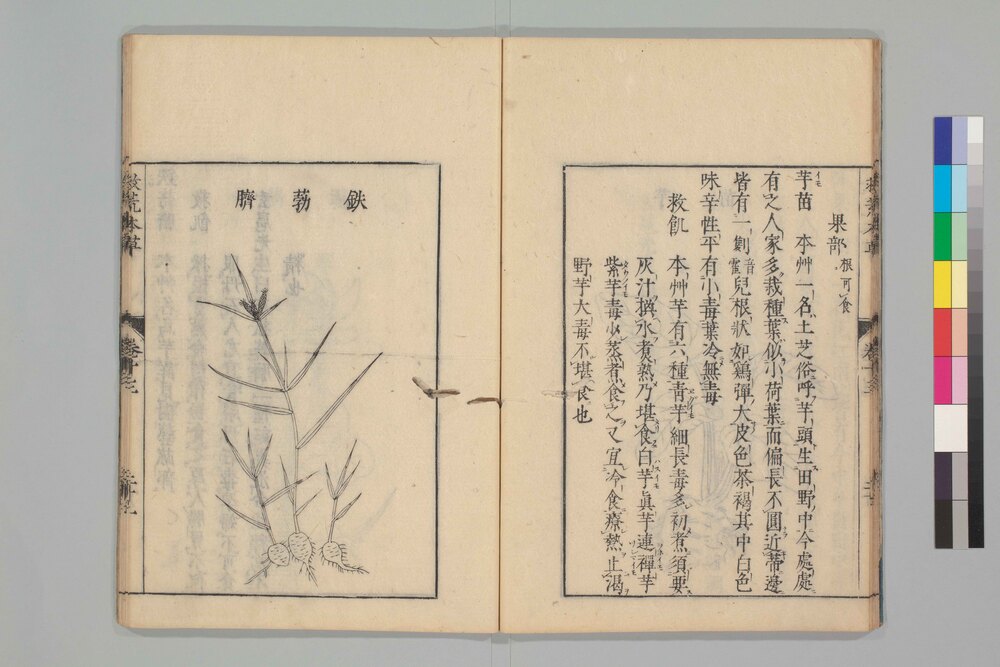 果部 根可食
芋苗 本艸一名土芝俗呼芋頭生田野中今處處
有之人家多栽種葉似小荷葉而偏長不圓近蒂邊
皆有一劐音霍兒根狀如鷄彈大皮色茶褐其中白色
味辛性平有小毒葉冷無毒
救飢 本艸芋有六種青芋細長毒多初煮須要
灰汁換水煮熟乃堪食白芋眞芋連禪芋
紫芋毒少蒸煮食之又宜冷食療熱止渴
野芋大毒不堪食也
鉄葧臍
救荒本草